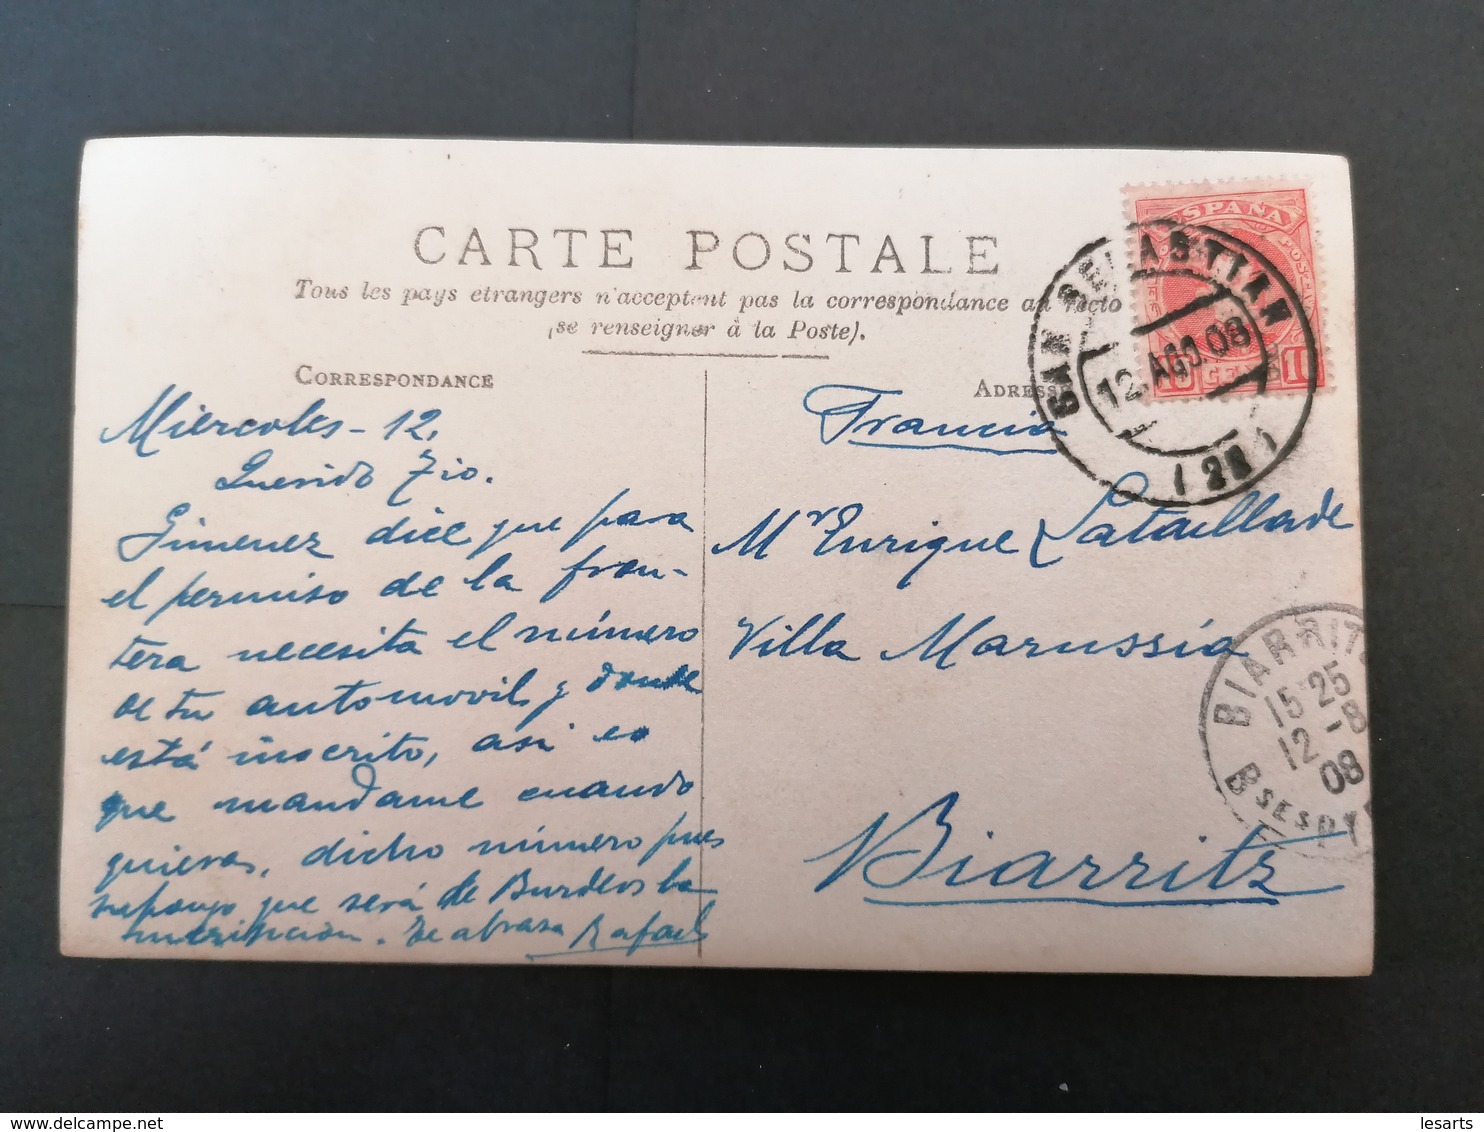 CARTE POSTALE
Tous les pays etrangers n'acceptent pas la correspondance au recto
(se renseigner à la Poste).
CORRESPONDANCE
ADRESSE
ESPAÑA
SAN SEBASTIAN
12 AGO.08
Miercoles - 12.
Querido Tio.
Gimenez dice que para
el permiso de la fron-
tera necesita el número
de tu automovil y donde
está inscrito, asi es
que mandame cuando
quieras, dicho número pues
supongo que será de Burdeos la
inscripcion. Te abraza Rafael
Francia
Mr Enrique Lataillade
Villa Marussia
Biarritz
BIARRITZ
15 25
12 -8
08
Bses PY
lesarts